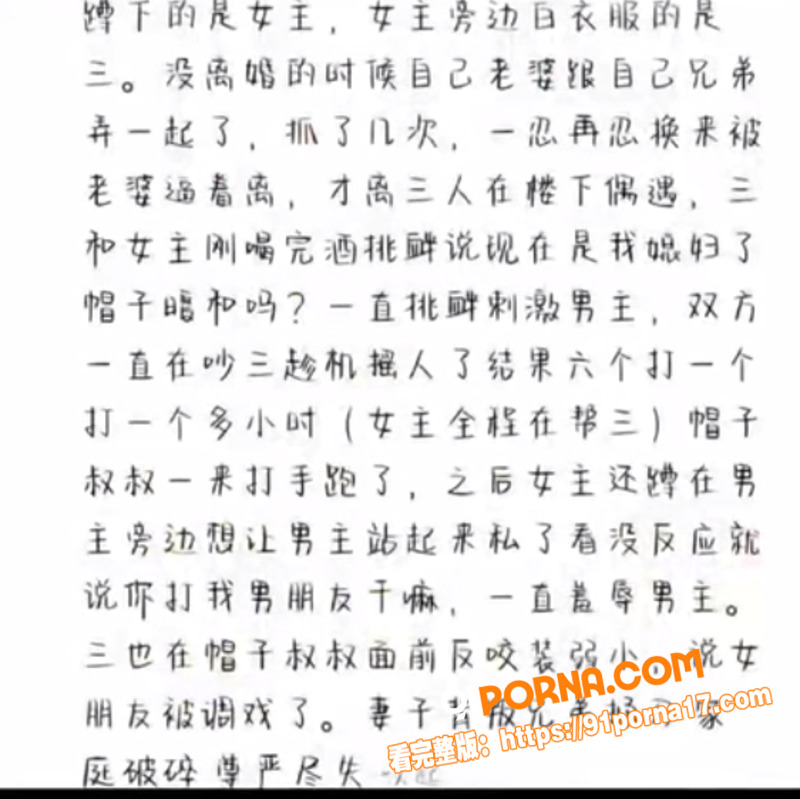 蹲下的是女主，女主旁边白衣服的是
三。没离婚的时候自己老婆跟自己兄弟
弄一起了，抓了几次，一忍再忍换来被
老婆逼着离，才离三人在楼下偶遇，三
和女主刚喝完酒挑衅说现在是我媳妇了
帽子暖和吗？一直挑衅刺激男主，双方
一直在吵三趁机摇人了结果六个打一个
打一个多小时（女主全程在帮三）帽子
叔叔一来打手跑了，之后女主还蹲在男
主旁边想让男主站起来私了看没反应就
说你打我男朋友干嘛，一直羞辱男主。
三也在帽子叔叔面前反咬装弱小 说女
PORNA.COM
朋友被调戏了。妻子背叛兄弟 家
看完整版：https://91porna17.com
庭破碎尊严尽失